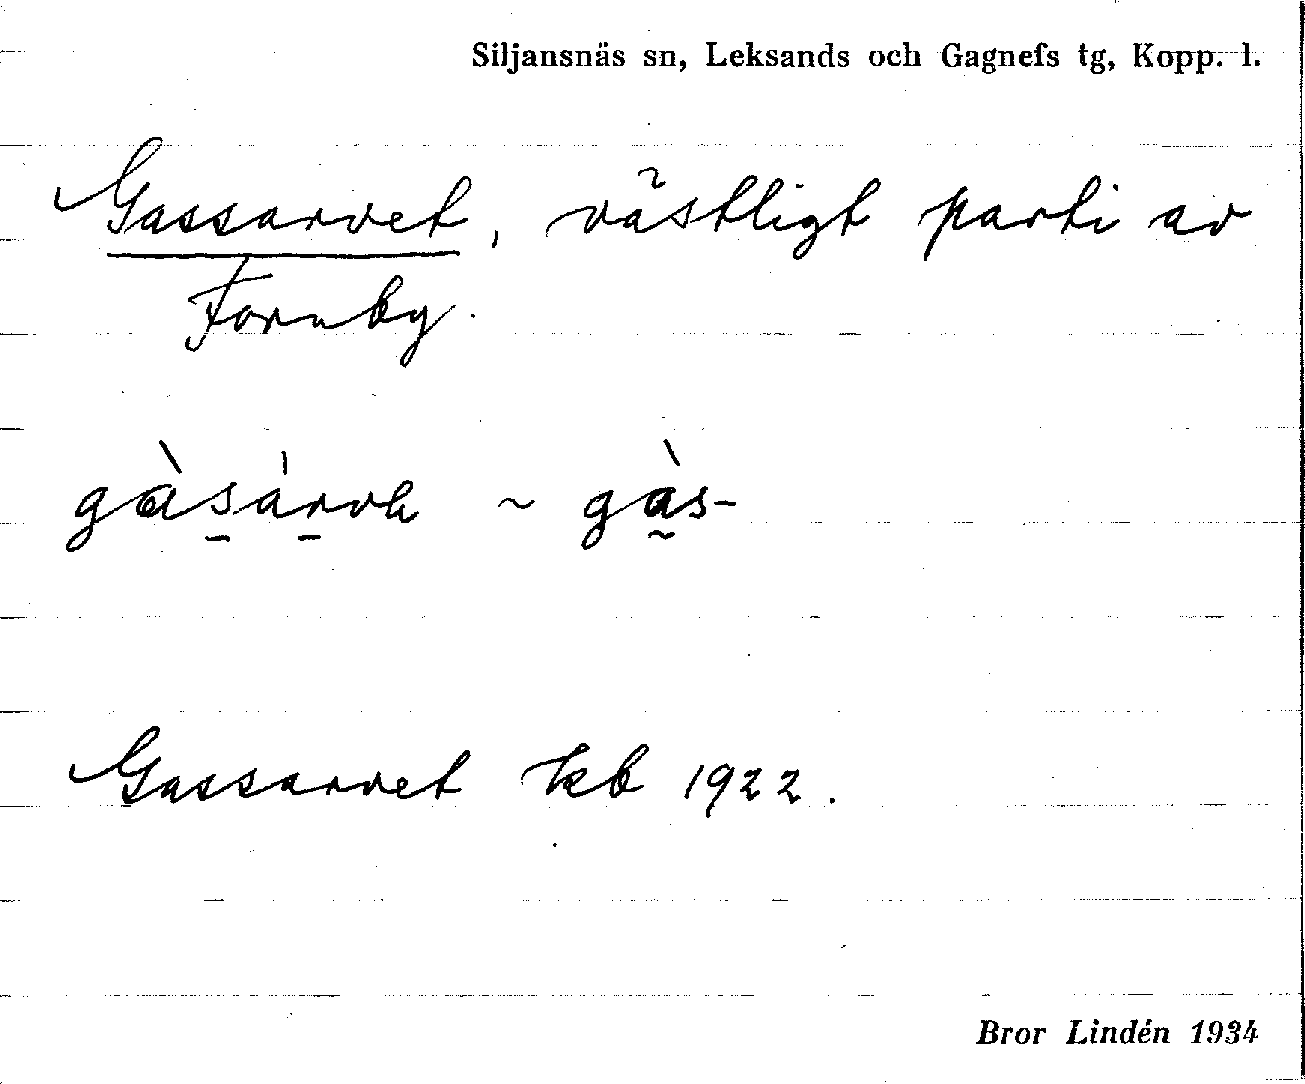 Siljansnäs sn, Leksands och Gagnefs tg, Kopp. l.
Gassarvet, västligt parti av
Fornby.
gàsàrvə ~ gàs-
Gassarvet kb 1922.
Bror Lindén 1934